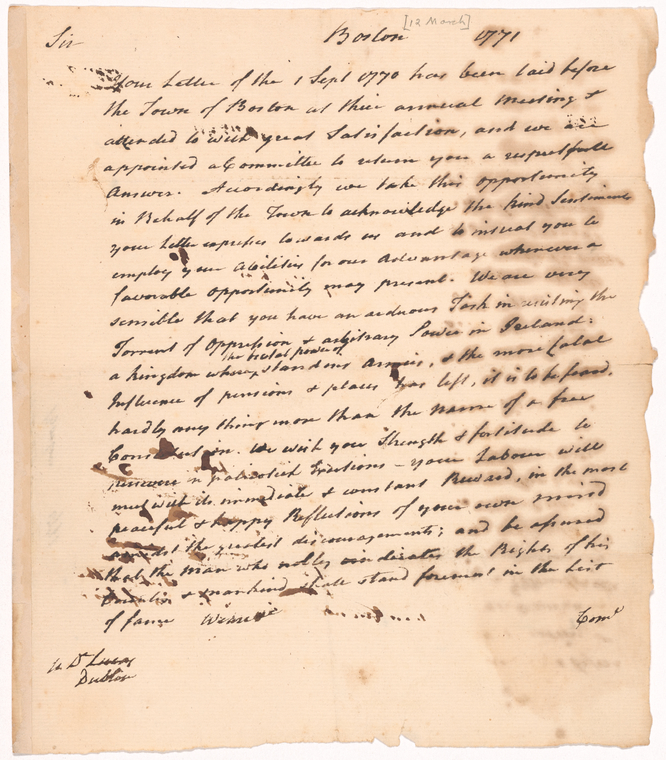 [12 March]
Sir Boston 1771
Your Letter of the 1 Sept 1770 has been laid before
the Town of Boston at their annual Meeting &
attended to with great Satisfaction, and we are
appointed a Committee to return you a respectfull
Answer. Accordingly we take this opportunity
in Behalf of the Town to acknowledge the kind Sentiments
your Letter expresses towards us and to intreat you to
employ your Abilities for our Advantage whenever a
favorable opportunity may present. We are very
sensible that you have an arduous Task in resisting the
Torrent of Oppression & arbitrary Power in Ireland:
the brutal power of
a kingdom where standing Armies, & the more fatal
Influence of pensions & places has left, it is to be feard,
hardly any thing more than the name of a free
Constitution. We wish you Strength & fortitude to
persevere in patriotick Exertions – your Labour will
meet with its immediate & constant Reward, in the most
peaceful & happy Reflections of your own mind
amidst the greatest discouragements; and be assured
that the man who nobly vindicates the Rights of his
Country & mankind shall stand foremost in the List
of fame We are
Comt
To Dr Lucas
Dublin